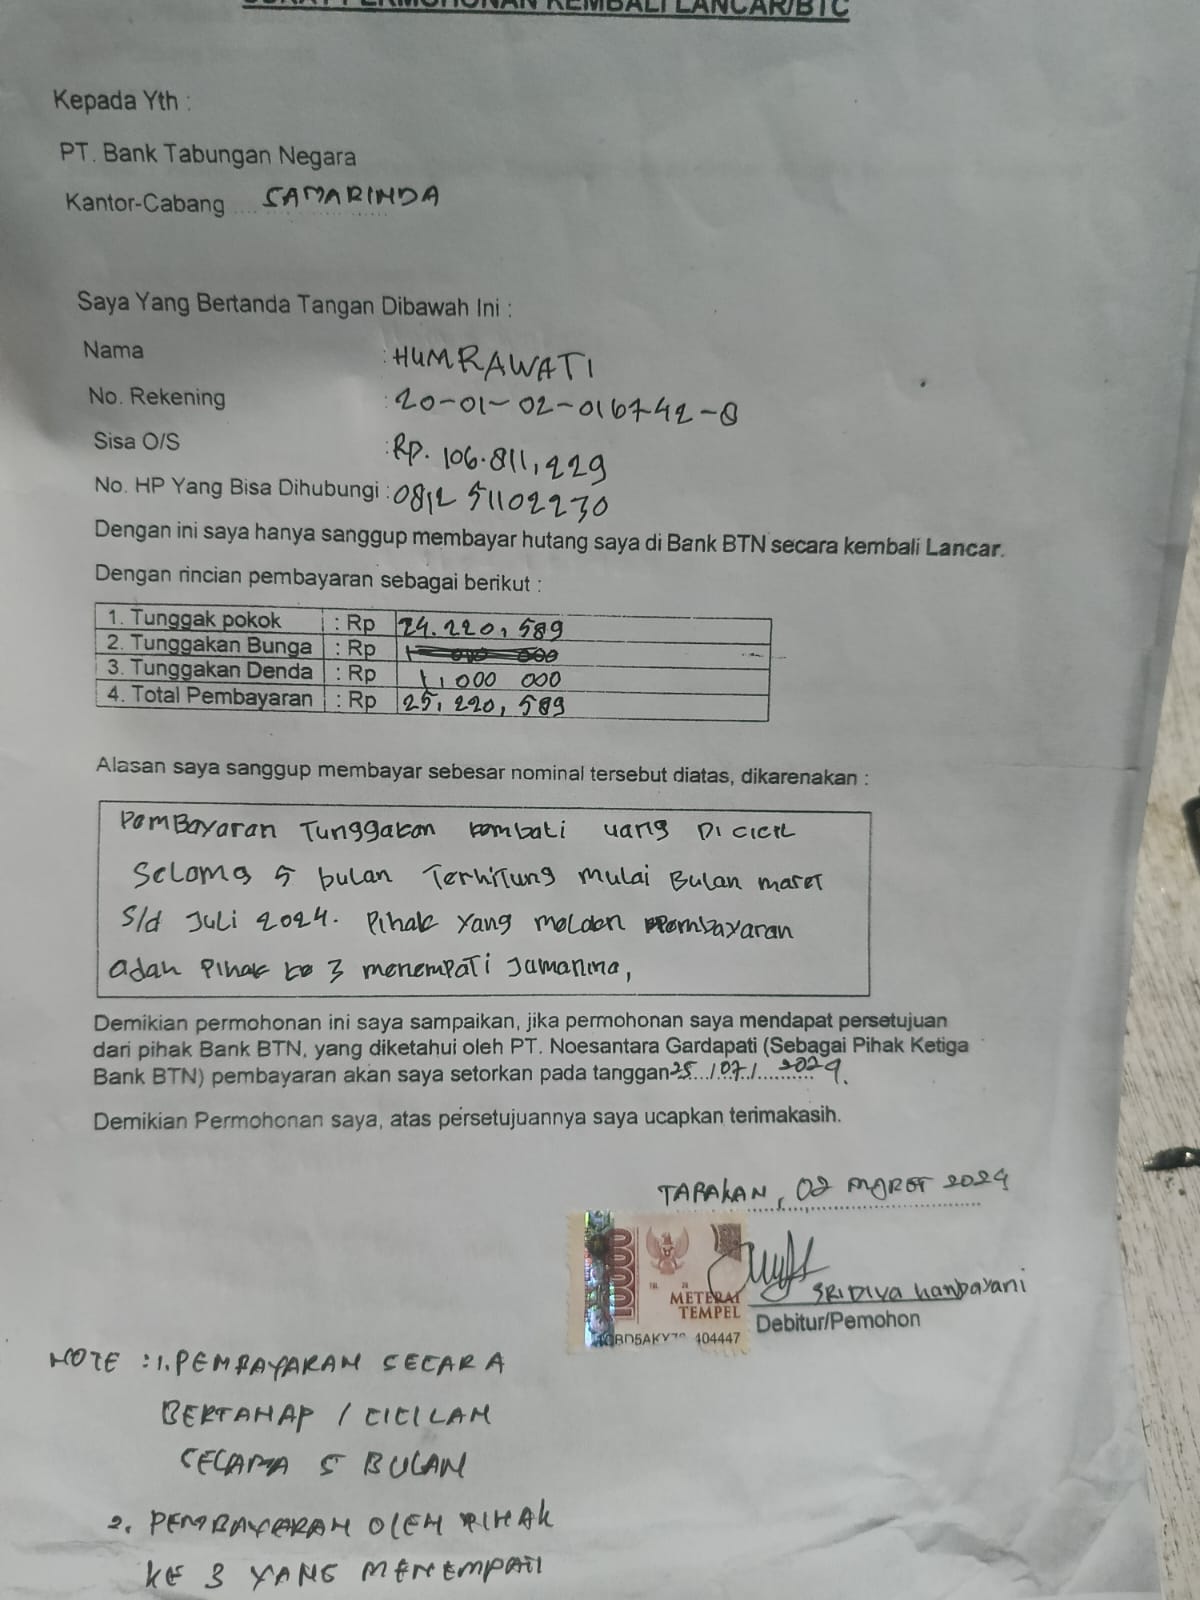 SURAT PERMOHONAN KEMBALI LANCAR/BTC
Kepada Yth :
PT. Bank Tabungan Negara
Kantor-Cabang .... SAMARINDA
Saya Yang Bertanda Tangan Dibawah Ini :
Nama : HUMRAWATI
No. Rekening : 20-01-02-016742-8
Sisa O/S : Rp. 106.811,229
No. HP Yang Bisa Dihubungi : 0812 51102230
Dengan ini saya hanya sanggup membayar hutang saya di Bank BTN secara kembali Lancar.
Dengan rincian pembayaran sebagai berikut :
1. Tunggak pokok : Rp 24.220,589
2. Tunggakan Bunga : Rp
3. Tunggakan Denda : Rp 1,000 000
4. Total Pembayaran : Rp 25,220,589
Alasan saya sanggup membayar sebesar nominal tersebut diatas, dikarenakan :
PemBayaran Tunggakan kembali uang Di cicil
Selama 5 bulan Terhitung mulai Bulan maret
s/d Juli 2024. Pihak yang Pembayaran
adah Pihak ke 3 menempati
Demikian permohonan ini saya sampaikan, jika permohonan saya mendapat persetujuan
dari pihak Bank BTN, yang diketahui oleh PT. Noesantara Gardapati (Sebagai Pihak Ketiga
Bank BTN) pembayaran akan saya setorkan pada tanggan 25.../07./....2024.
Demikian Permohonan saya, atas persetujuannya saya ucapkan terimakasih.
TARAKAN, 02 MARET 2024
10000
METERAI
TEMPEL
404447
SRI DIYA Handayani
Debitur/Pemohon
NOTE : 1. PEMBAYARAN SECARA
BERTAHAP / CICILAN
SELAMA 5 BULAN
2. PEMBAYARAN OLEH PIHAK
KE 3 YANG MENEMPATI